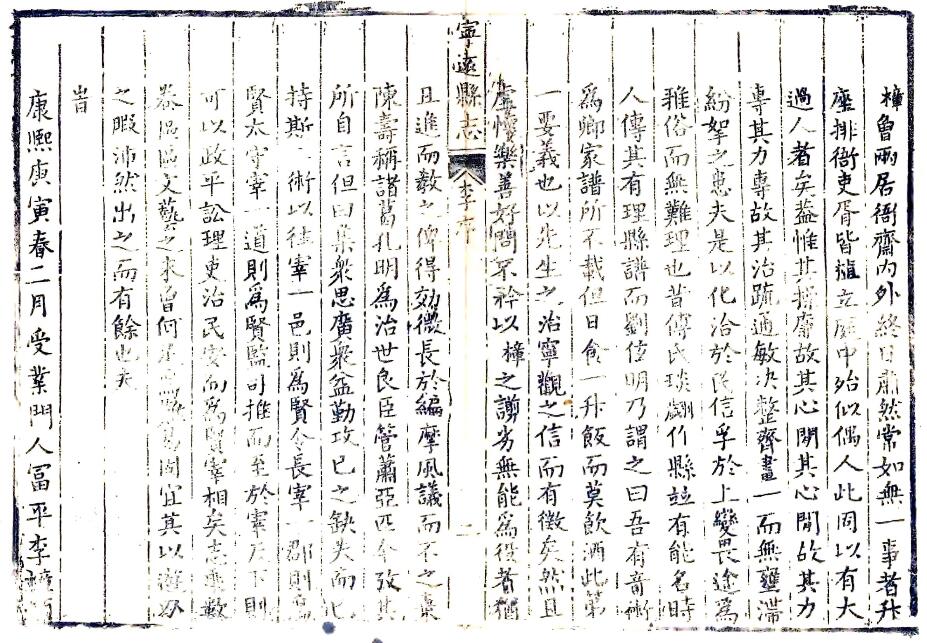 樟魯兩居衙齋內外終日肅然常如無一事者升
座排衙吏胥皆植立庭中殆似偶人此固以有大
過人者矣蓋惟其操廉故其心閒其心閒故其力
專其力專故其治疏通敏決整齊畫一而無壅滯
紛拏之患夫是以化洽於民信孚於上變畏途為
雅俗而無難理也昔傅氏琰翽仆縣並有能名時
人傳其有理縣譜而劉信明乃謂之曰吾有奇術
為卿家譜所不載但日食一升飯而莫飲酒此第
一要義也以先生之治寧觀之信而有徵矣然且
虛懷樂善好問不矜以樟之謭劣無能為役者猶
寧遠縣志
李序
且進而教之俾得効微長於編摩風議而不之棄
陳壽稱諸葛孔明為治世良臣管蕭亞匹今攷其
所自言但曰集眾思廣眾益勤攻已之缺失而已
持斯術以往宰一邑則為賢令長宰一郡則為
賢太守宰一道則為賢監司推而至於宰天下則
可以政平訟理吏治民安而為賢宰相矣志乘數
卷區區文藝之末曾何足
宜其以游刃
之暇沛然出之而有餘也夫
旹
康熙庚寅春二月受業門人富平李